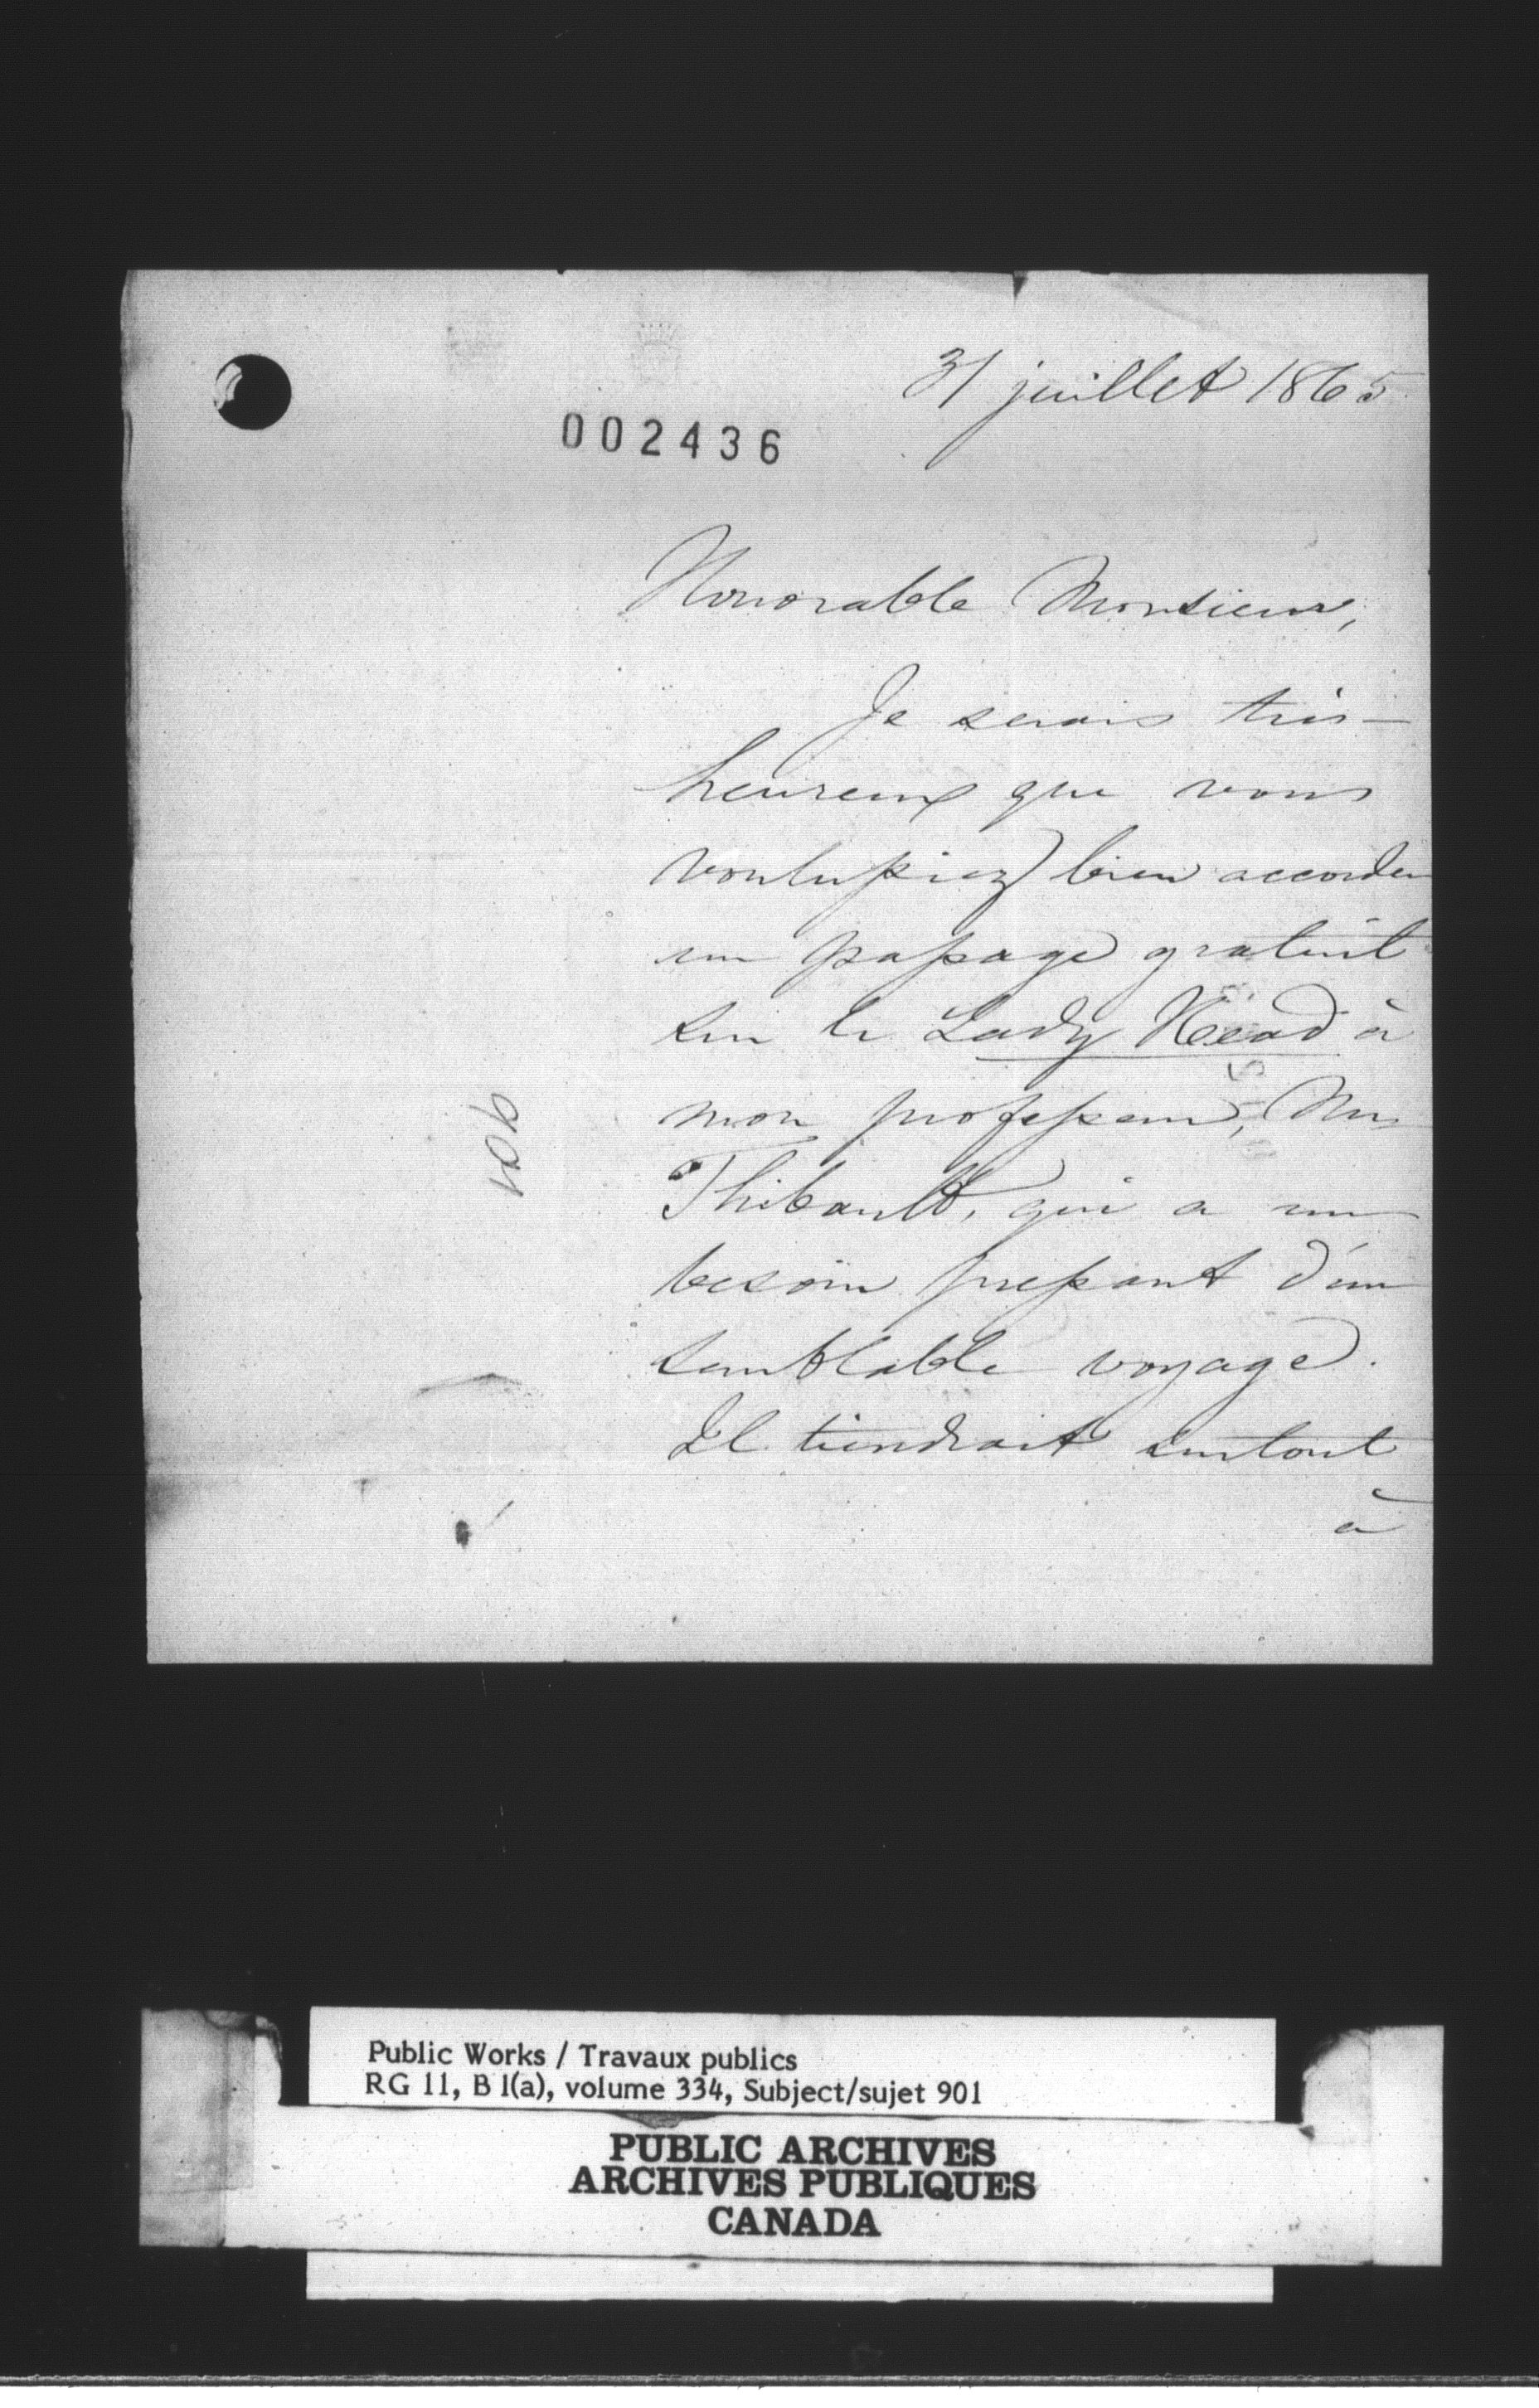 31 juillet 1865
002436
Honorable Monsieur,
Je serais très-
heureux que vous
voulussiez bien accorder
un passage gratuit
sur le Lady Head à
mon professeur, Mr
Thibault, qui a un
besoin pressant d'un
semblable voyage.
Il tiendrait surtout
à
901
Public Works / Travaux publics
RG 11, B 1(a), volume 334, Subject/sujet 901
PUBLIC ARCHIVES
ARCHIVES PUBLIQUES
CANADA